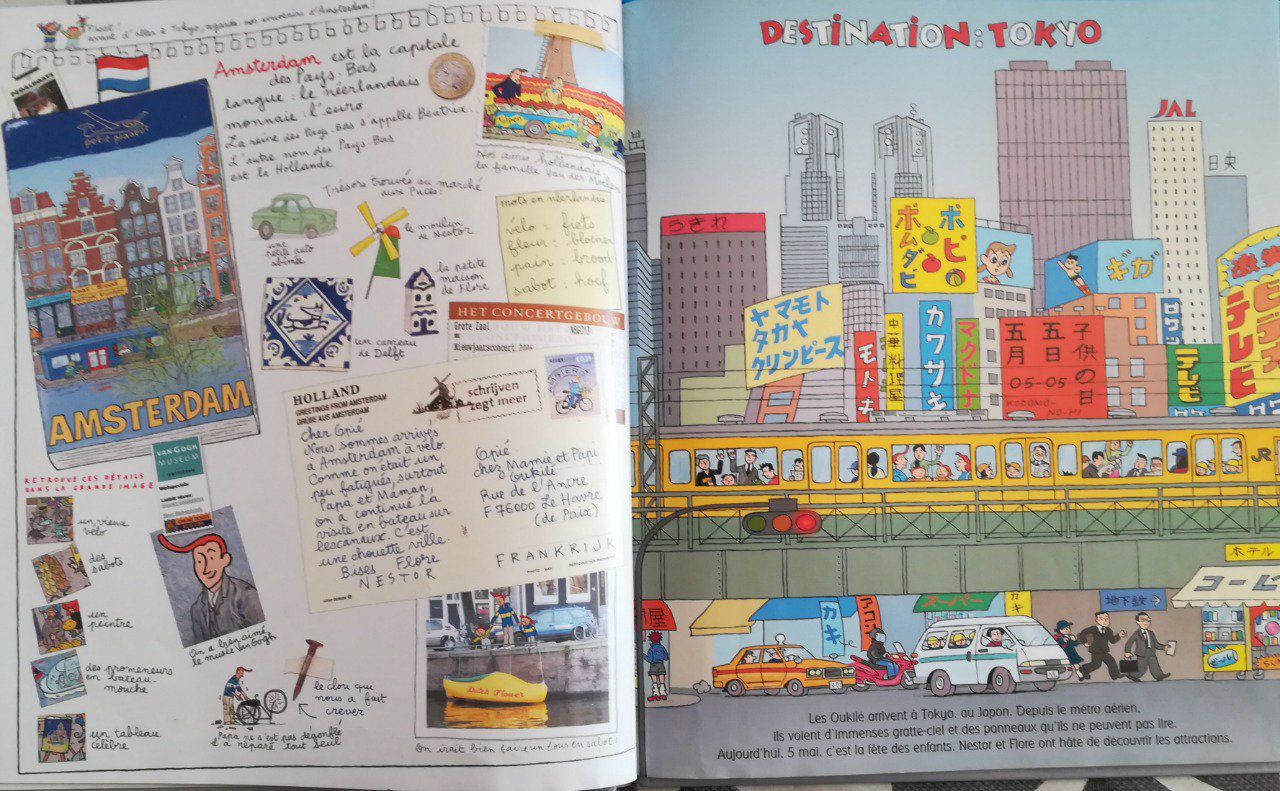 avant d'aller à Tokyo, regarde nos souvenirs d'Amsterdam !
Amsterdam est la capitale
des Pays-Bas
langue : le néerlandais
monnaie : l'euro
La reine des Pays-Bas s'appelle Beatrix.
L'autre nom des Pays Bas
est la Hollande
petit planet
AMSTERDAM
Nos amis hollandais :
la famille Van der
Trésors trouvés au marché
aux Puces :
une
petite auto
abîmée
le moulin
de Nestor
la petite
maison
de Flore
un carreau
de Delft
mots en néerlandais
vélo : fiets
fleur : bloemen
pain : brood
sabot : hoef
HET CONCERTGEBOUW
Grote Zaal
Nieuwjaarsconcert
HOLLAND
GREETINGS FROM AMSTERDAM
GRÜßE AUS AMSTERDAM
schrijven
zegt meer
cher Opié
Nous sommes arrivés
à Amsterdam à vélo.
Comme on était un
peu fatigués, surtout
Papa et Maman,
on a continué la
visite en bateau sur
les canaux. C'est
une chouette ville.
Bises Flore
NESTOR
Opié
chez Mamie et Papi
Oukilé
Rue de l'Ancre
F 76000 Le Havre
(de Paix)
FRANKRIJK
VAN GOGH
MUSEUM
RETROUVE CES DÉTAILS
DANS LA GRANDE IMAGE
un vieux
vélo
des
sabots
un
peintre
des promeneurs
en bateau-
mouche
un tableau
célèbre
On a bien aimé
le musée Van Gogh
le clou qui
nous a fait
crever
Papa ne s'est pas dégonflé
il a réparé tout seul
Dutch Flower
On irait bien faire un tour en sabot !
DESTINATION : TOKYO
JAL
日央
うきれ
ボピ
ボムダビ
ギガ
ヤマモト
タカヤ
クリンピース
モトナ
中華料理屋
カワサキ
マクドナ
五月
五日
子供の日
05-05
KODOMO-
NO-HI
ロケッ
テレビ
テレビ
JR
ホテル
コーヒ
屋
カキ
アコ
スーパー
カキ
地下鉄
Les Oukilé arrivent à Tokyo, au Japon. Depuis le métro aérien,
ils voient d'immenses gratte-ciel et des panneaux qu'ils ne peuvent pas lire.
Aujourd'hui, 5 mai, c'est la fête des enfants. Nestor et Flore ont hâte de découvrir les attractions.